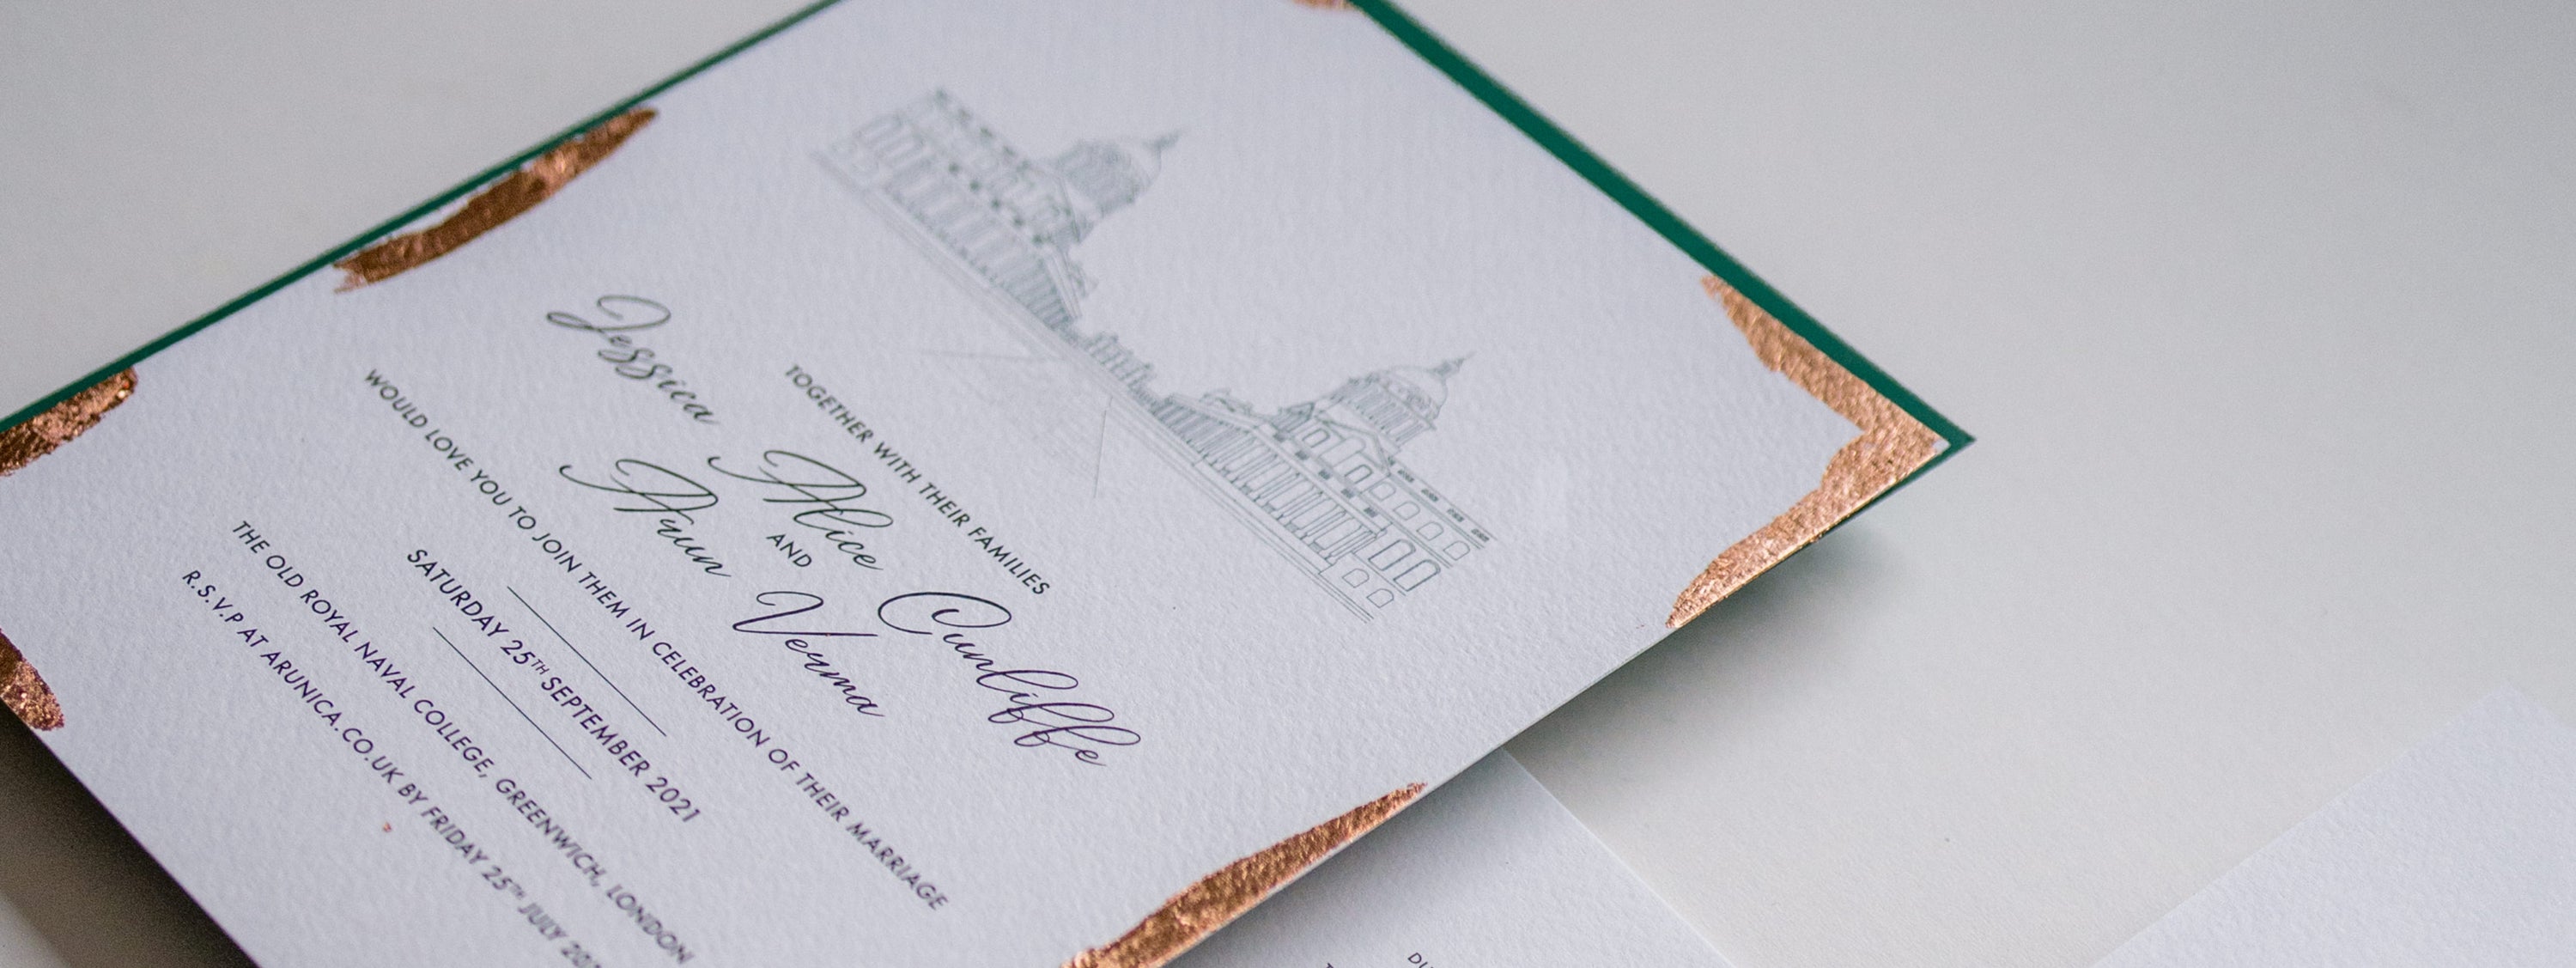 TOGETHER WITH THEIR FAMILIES
Jessica Alice Cunliffe
AND
Arun Verma
WOULD LOVE YOU TO JOIN THEM IN CELEBRATION OF THEIR MARRIAGE
SATURDAY 25TH SEPTEMBER 2021
THE OLD ROYAL NAVAL COLLEGE, GREENWICH, LONDON
R.S.V.P AT ARUNICA.CO.UK BY FRIDAY 25TH JULY